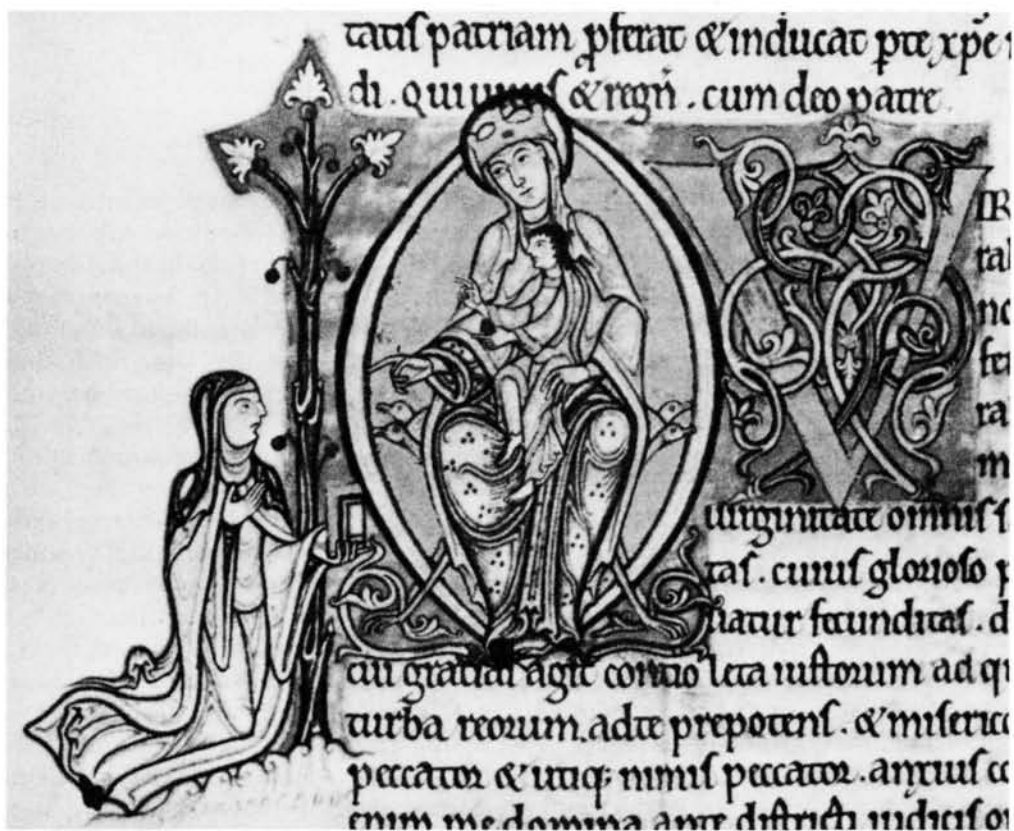 tatis patriam ꝑferat & inducat pte xp̄e
di . qui uiuis & regn̄ . cum deo patre
V IR
no
fe
ra
m
uirginitate omnis
tas . cuius glorioso p
natur fecunditas . d
cui gratias agit contio leta iustorum ad q
turba reorum . adte prepotens . & miserico
peccator & utiq; nimis peccator . anxius co
enim me domina ante districti iudicis